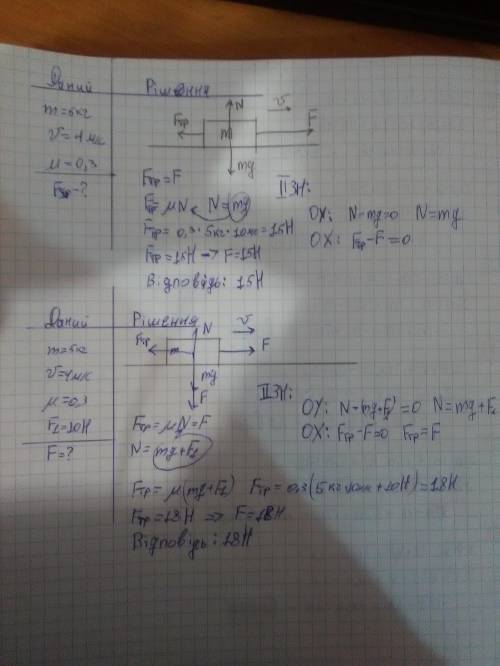 Даний Рішення
m=5кг
V=4мс
μ=0,3
Fтр-?
N V
Fтр m F
mg
Fтр=F
Fтр=μN N=mg
Fтр=0,3·5кг·10мс=15Н
Fтр=15Н → F=15Н
Відповідь: 15Н
IIЗН:
OX: N-mg=0 N=mg
OX: Fтр-F=0
Даний Рішення
m=5кг
V=4мс
μ=0,3
F2=10Н
F=?
N V
Fтр m F
mg
F
Fтр=μN=F
N=mg+F2
IIЗН:
OY: N-(mg+F2)=0 N=mg+F2
OX: Fтр-F=0 Fтр=F
Fтр=μ(mg+F2) Fтр=0,3(5кг·10мс+10Н)=18Н
Fтр=18Н => F=18Н
Відповідь: 18Н